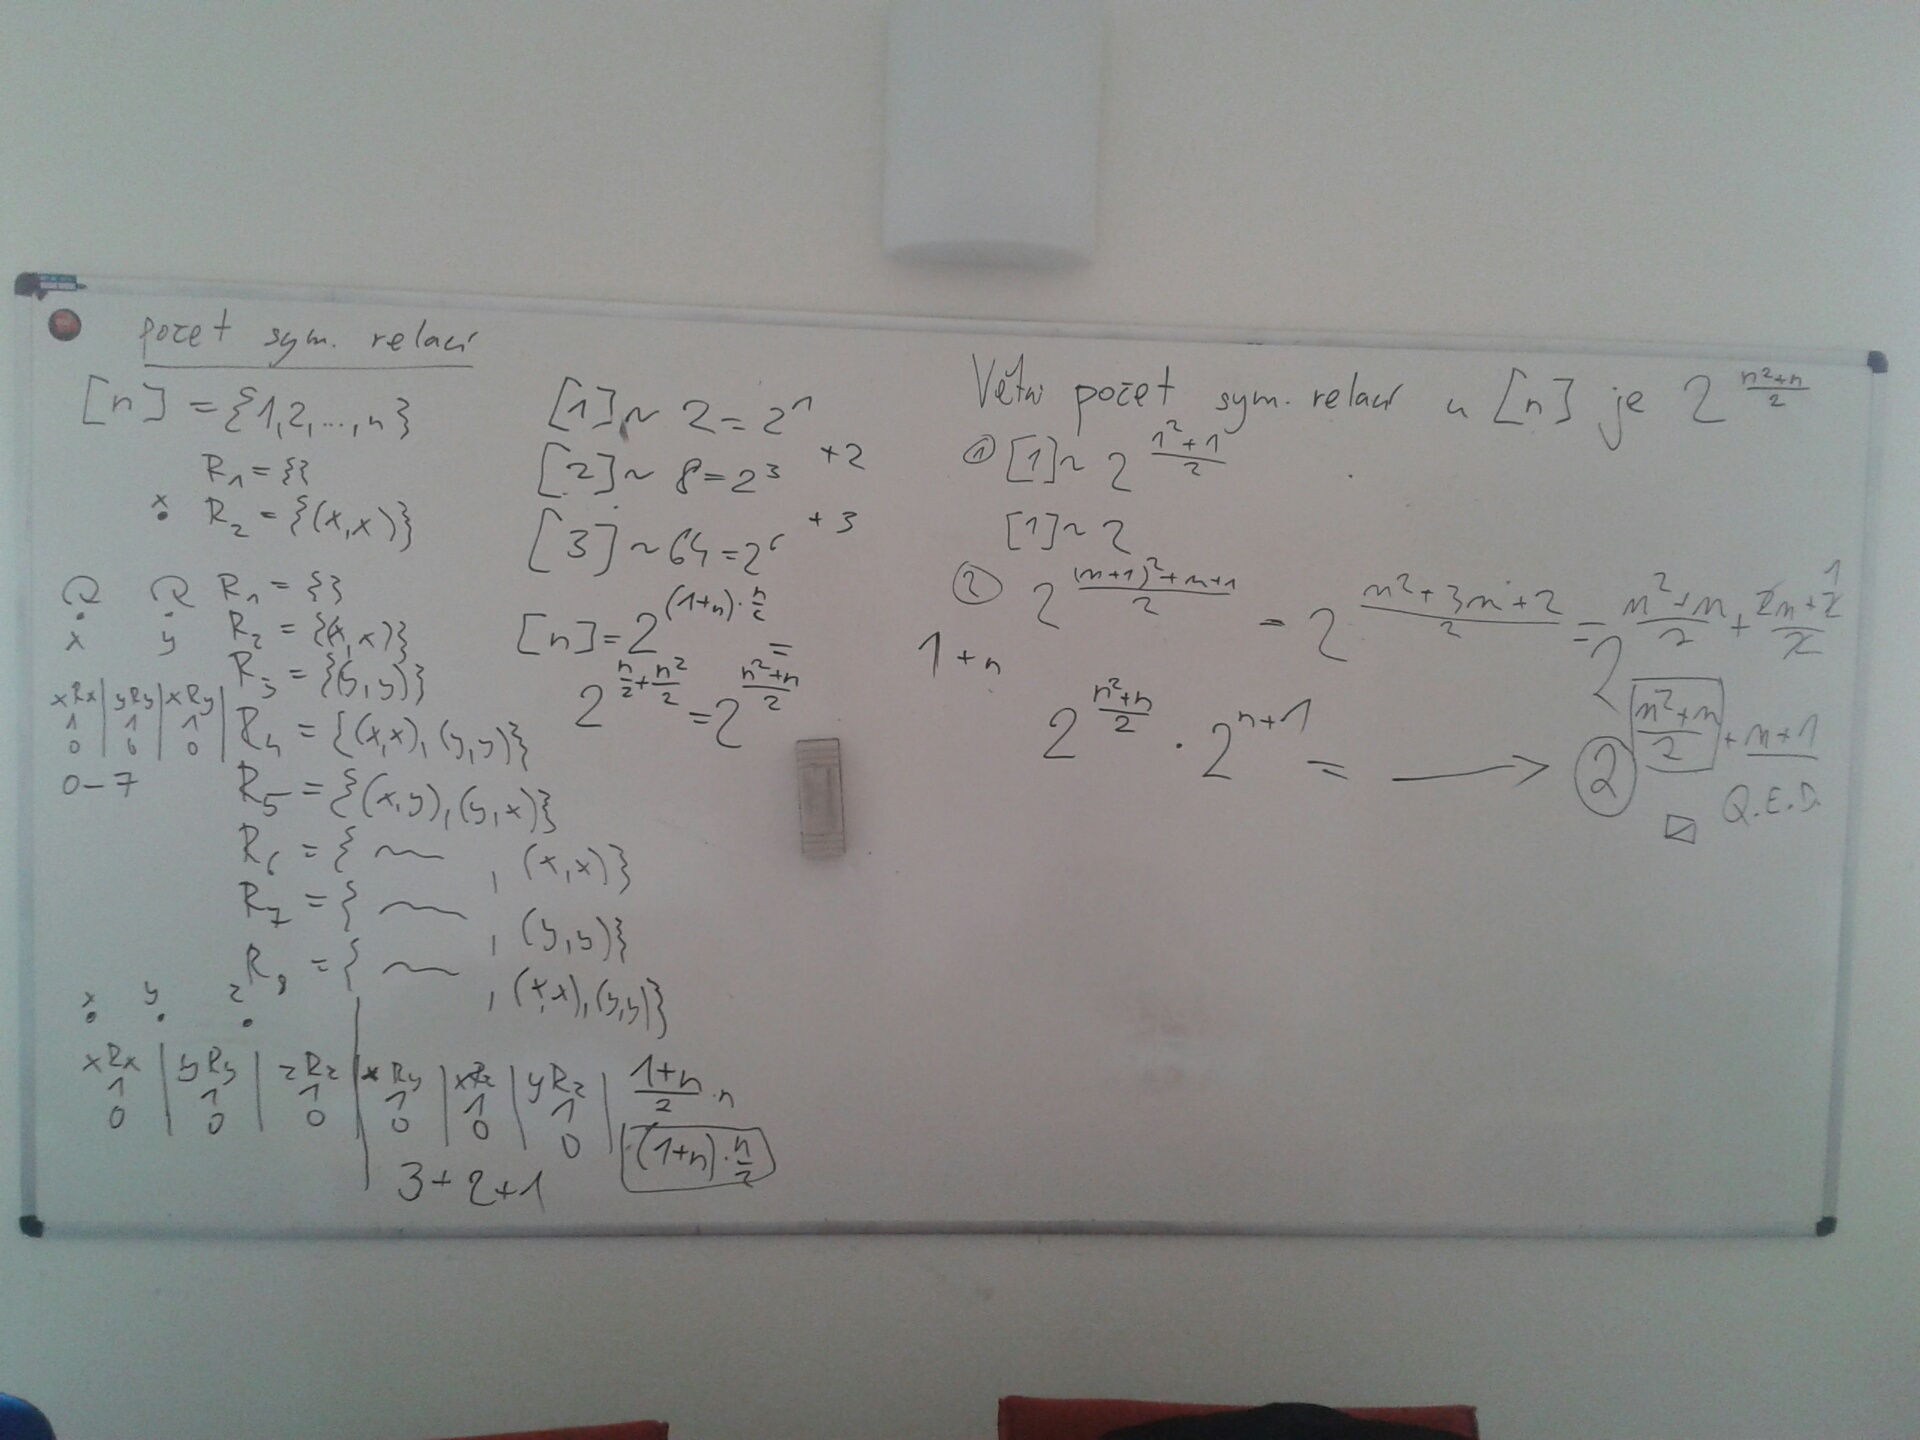 počet sym. relací
[n] = {1,2,...,n}
R₁ = {}
x
R₂ = {(x,x)}
R₁ = {}
x y R₂ = {(x,x)}
R₃ = {(y,y)}
xRx | yRy | xRy |
1 | 1 | 1
0 | 0 | 0
R₄ = {(x,x),(y,y)}
0–7
R₅ = {(x,y),(y,x)}
R₆ = { ~ , (x,x)}
R₇ = { ~ , (y,y)}
R₈ = { ~ , (x,x),(y,y)}
x y z
xRx | yRy | zRz | xRy | xRz | yRz |
1 | 1 | 1 | 1 | 1 | 1
0 | 0 | 0 | 0 | 0 | 0
3+2+1
(1+n)/2 · n
(1+n)·n/2
[1] ~ 2 = 2¹
[2] ~ 8 = 2³ +2
[3] ~ 64 = 2⁶ +3
[n] = 2^((1+n)·n/2) =
2^(n/2 + n²/2) = 2^((n²+n)/2)
počet sym. relací u [n] je 2^((n²+n)/2)
① [1] ~ 2^((1²+1)/2)
[1] ~ 2
② 2^(((n+1)²+n+1)/2) = 2^((n²+3n+2)/2) = 2^((n²+n)/2 + (2n+2)/2) 1
1+n
2^((n²+n)/2) · 2^(n+1) = → 2^((n²+n)/2 + n+1)
Q.E.D.